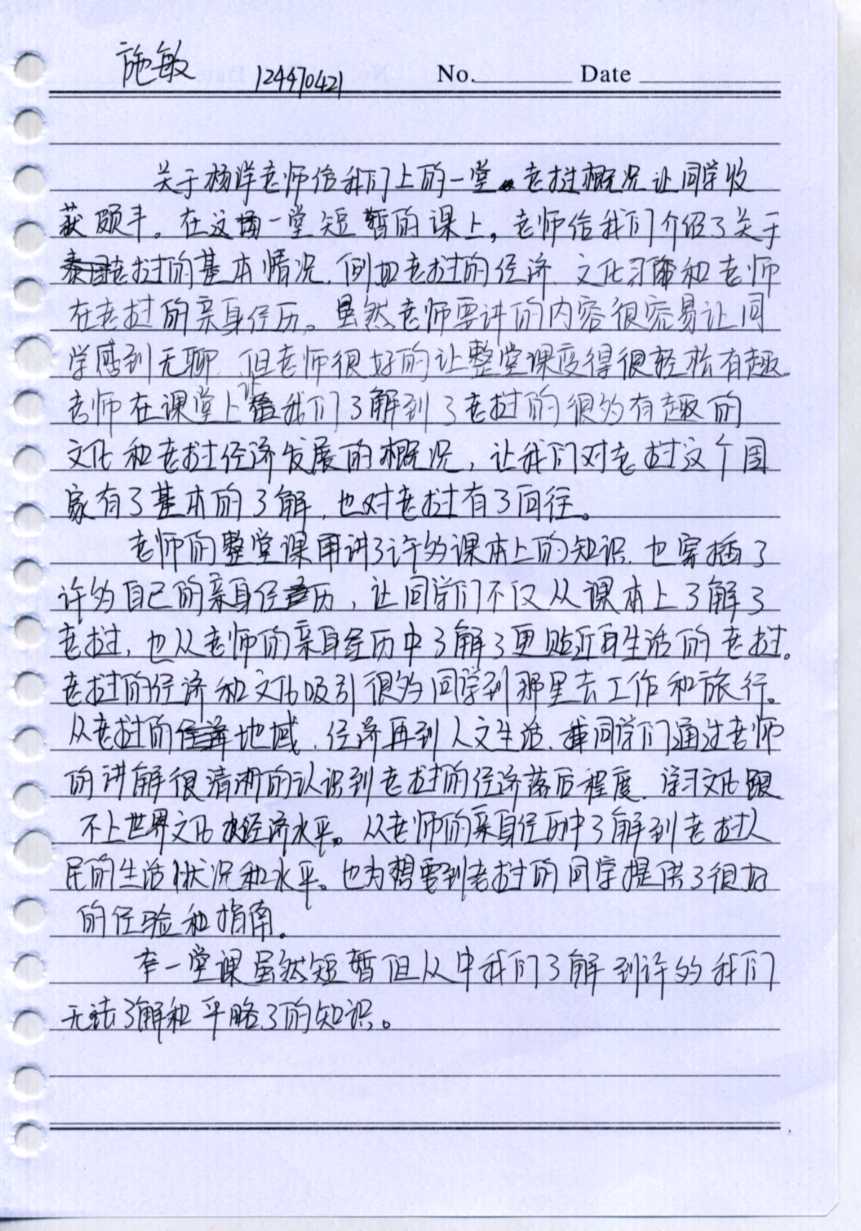 施敏 124470421 No. Date
关于杨洋老师给我们上的一堂老挝概况让同学收
获颇丰。在这一堂短暂的课上,老师给我们介绍了关于
老挝的基本情况,例如老挝的经济、文化习俗和老师
在老挝的亲身经历。虽然老师要讲的内容很容易让同
学感到无聊,但老师很好的让整堂课变得很轻松有趣。
老师在课堂上让我们了解到了老挝的很多有趣的
文化和老挝经济发展的概况,让我们对老挝这个国
家有了基本的了解,也对老挝有了向往。
老师的整堂课用讲了许多课本上的知识,也穿插了
许多自己的亲身经历,让同学们不仅从课本上了解了
老挝,也从老师的亲身经历中了解了更贴近生活的老挝。
老挝的经济和文化吸引很多同学到那里去工作和旅行。
从老挝的地域、经济再到人文生活,同学们通过老师
的讲解很清晰的认识到老挝的经济落后程度,学习文化跟
不上世界文化经济水平。从老师的亲身经历中了解到老挝人
民的生活状况和水平。也为想要到老挝的同学提供了很好
的经验和指南。
一堂课虽然短暂但从中我们了解到许多我们
无法了解和平略了的知识。